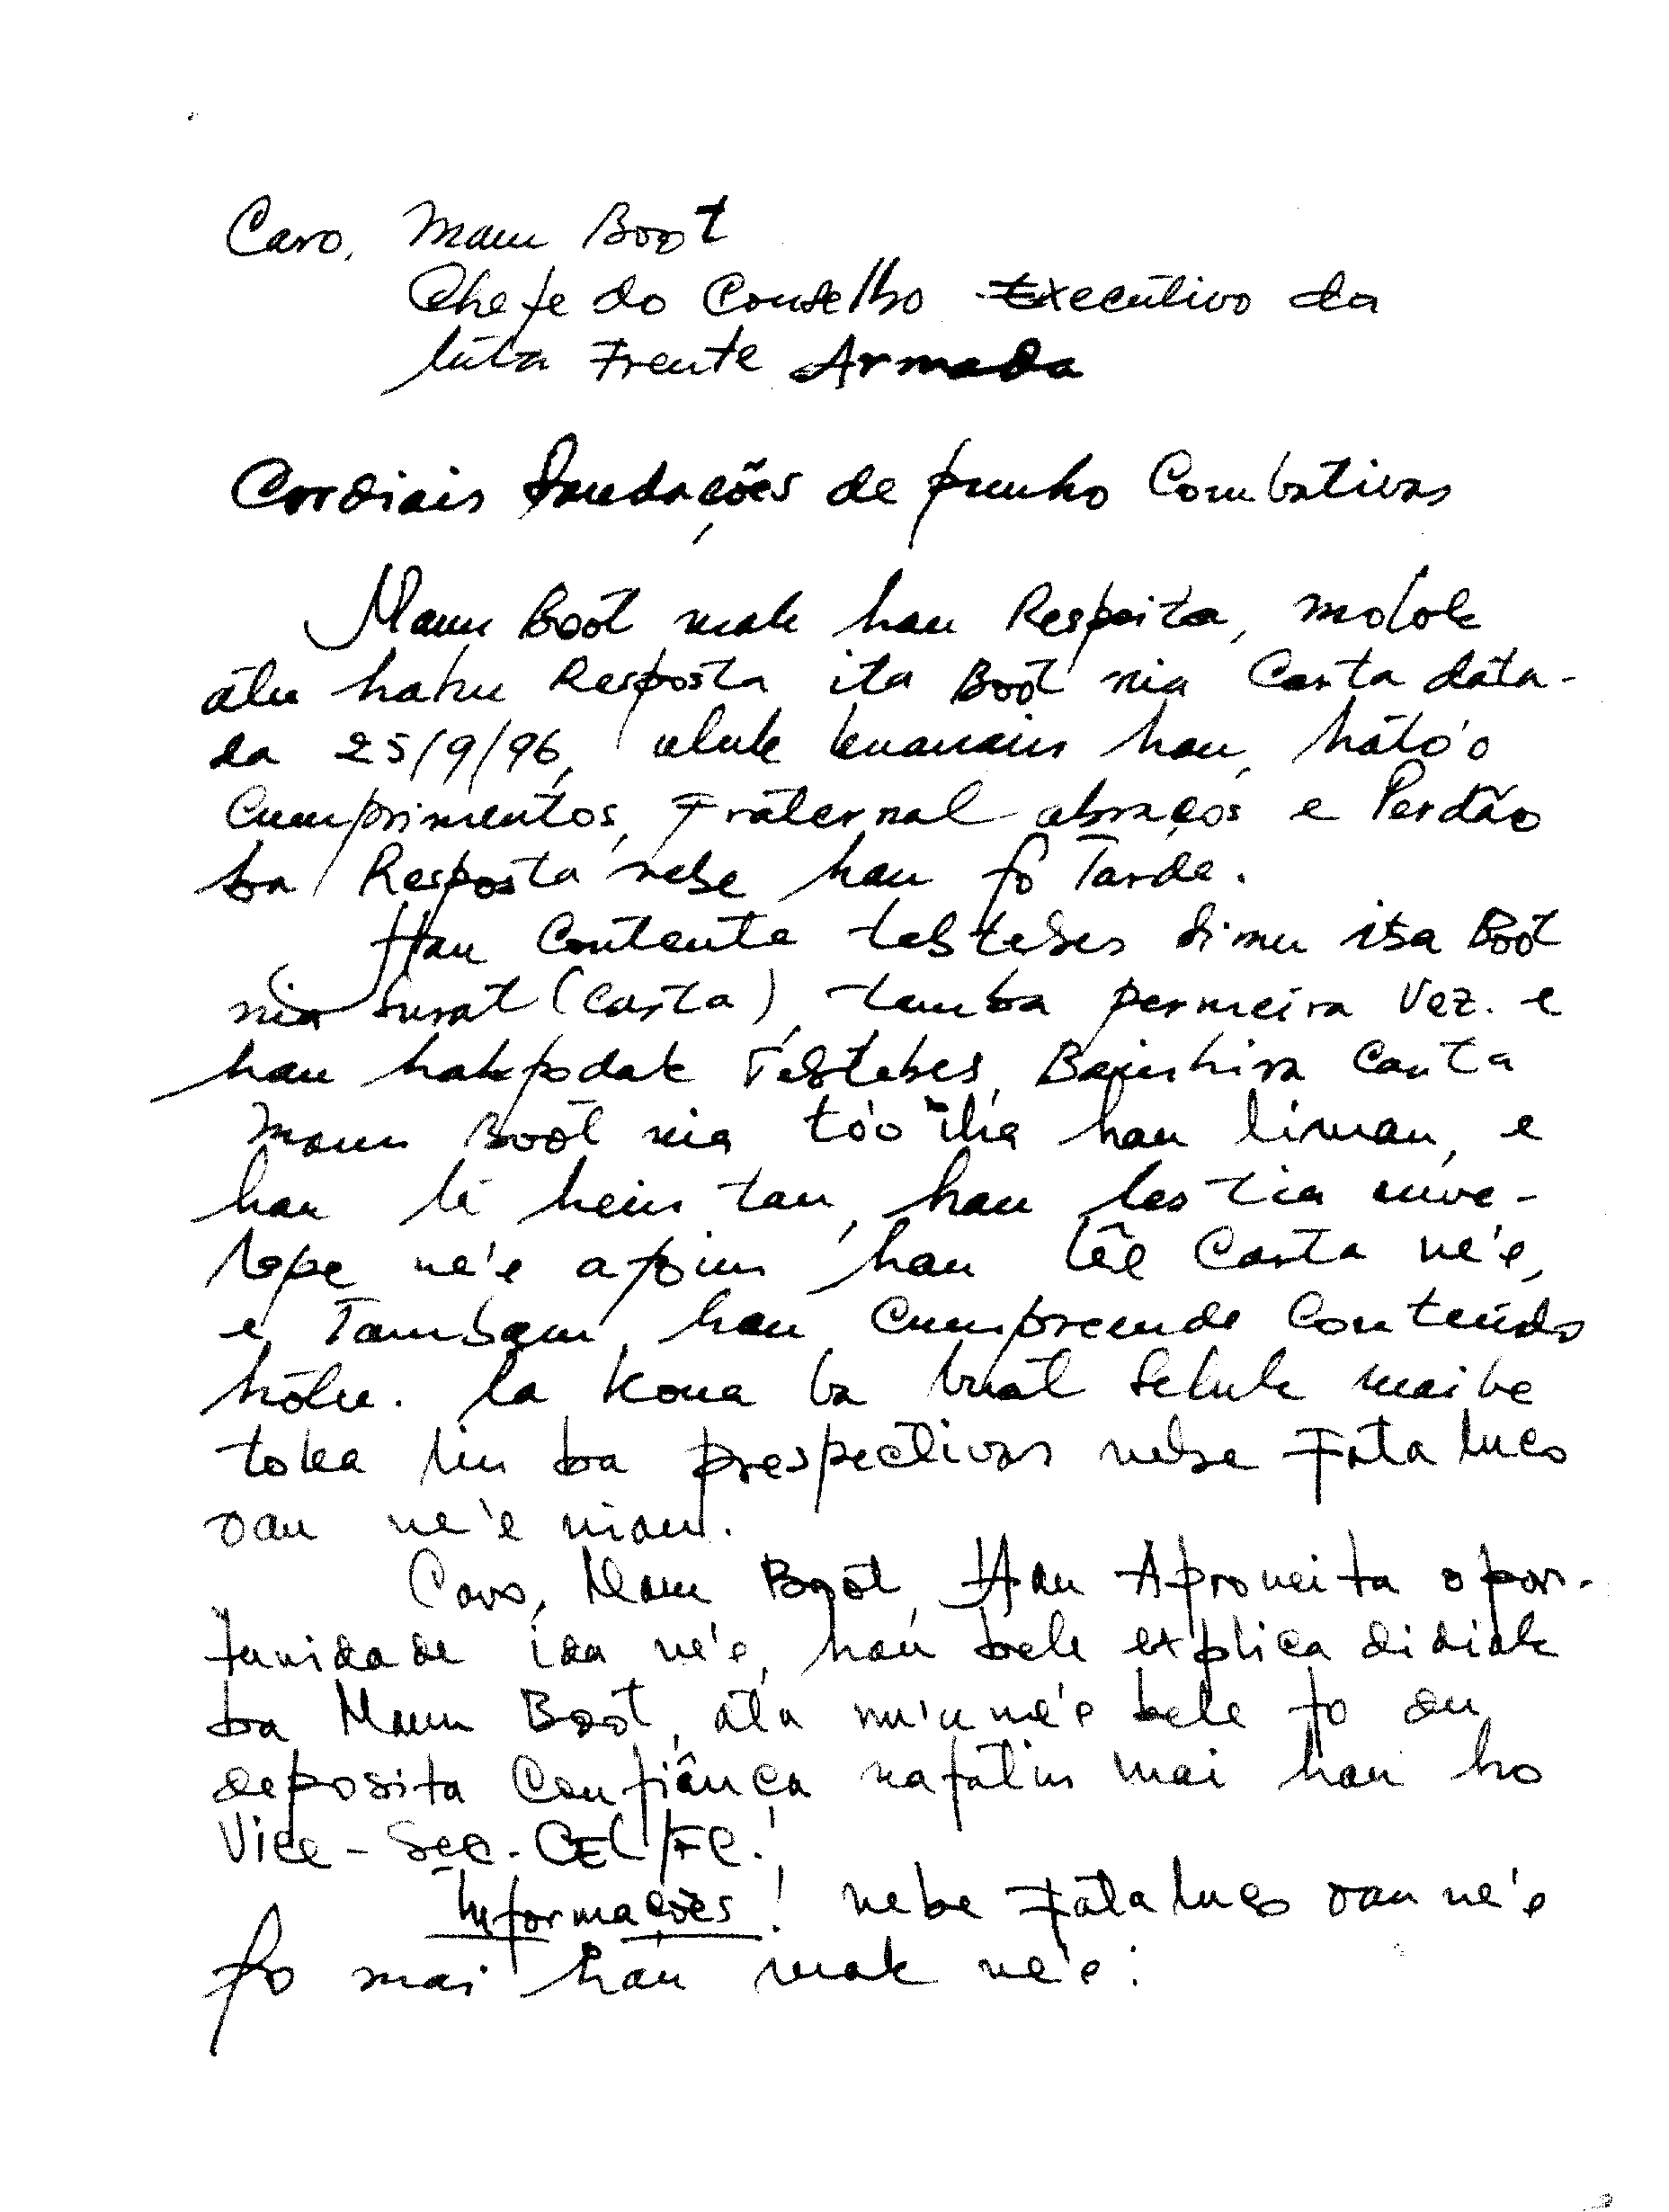 Caro, Maun Boot
Chefe do Conselho Executivo da
luta Frente Armada
Cordiais Saudações de punho Combativas
Maun Boot mak hau Respeita, molok
atu hahu Resposta ita Boot nia Carta data-
da 25/9/96, uluk kuanain hau, ható'o
Cumprimentos, Fraternal abraços e Perdão
ba Resposta nebe hau fó Tarde.
Hau Contente tebtebes simu ita Boot
nia Surat (Carta), tamba permeira Vez. e
hau hakpodak Tebtebes, Bainhira Carta
Maun Boot nia tó'o iha hau liman, e
hau la hein tan, hau les tia enve-
lope ne'e afoin hau lêe Carta ne'e,
e Tambem, hau Cumpreende Conteúdo
hotu. la kona ba buat seluk maibe
toka liu ba prespectivas nebe Fataluco
oan ne'e nian.
Caro, Maun Boot, Hau Aproveita opor-
tunidade ida ne'e, hau bele explica didiak
ba Maun Boot, atu nu'u ne'e bele fo ou
deposita Confiânça nafatin mai hau ho
Vice-Sec. CEL/FC.
Informações! nebe Fataluco oan ne'e
fo mai hau mak ne'e: